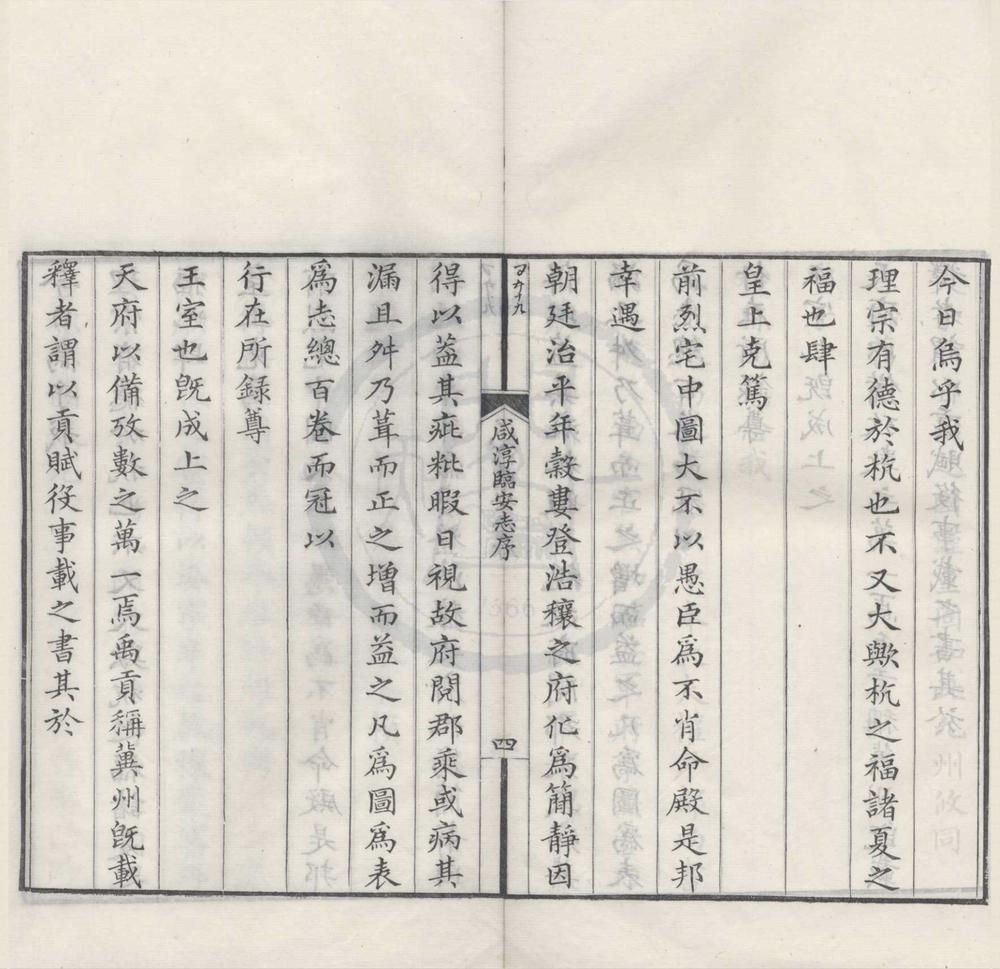 今日烏乎我
理宗有德於杭也不又大歟杭之福諸夏之
福也肆
皇上克篤
前烈宅中圖大不以愚臣爲不肖命殿是邦
幸遇
朝廷治平年穀婁登浩穰之府化爲簡靜因
咸淳臨安志序
四
得以葢其疵粃暇日視故府閱郡乘或病其
漏且舛乃葺而正之增而益之凡爲圖爲表
爲志總百卷而冠以
行在所録尊
王室也旣成上之
天府以備攷數之萬一焉禹貢稱冀州旣載
釋者謂以貢賦役事載之書其於